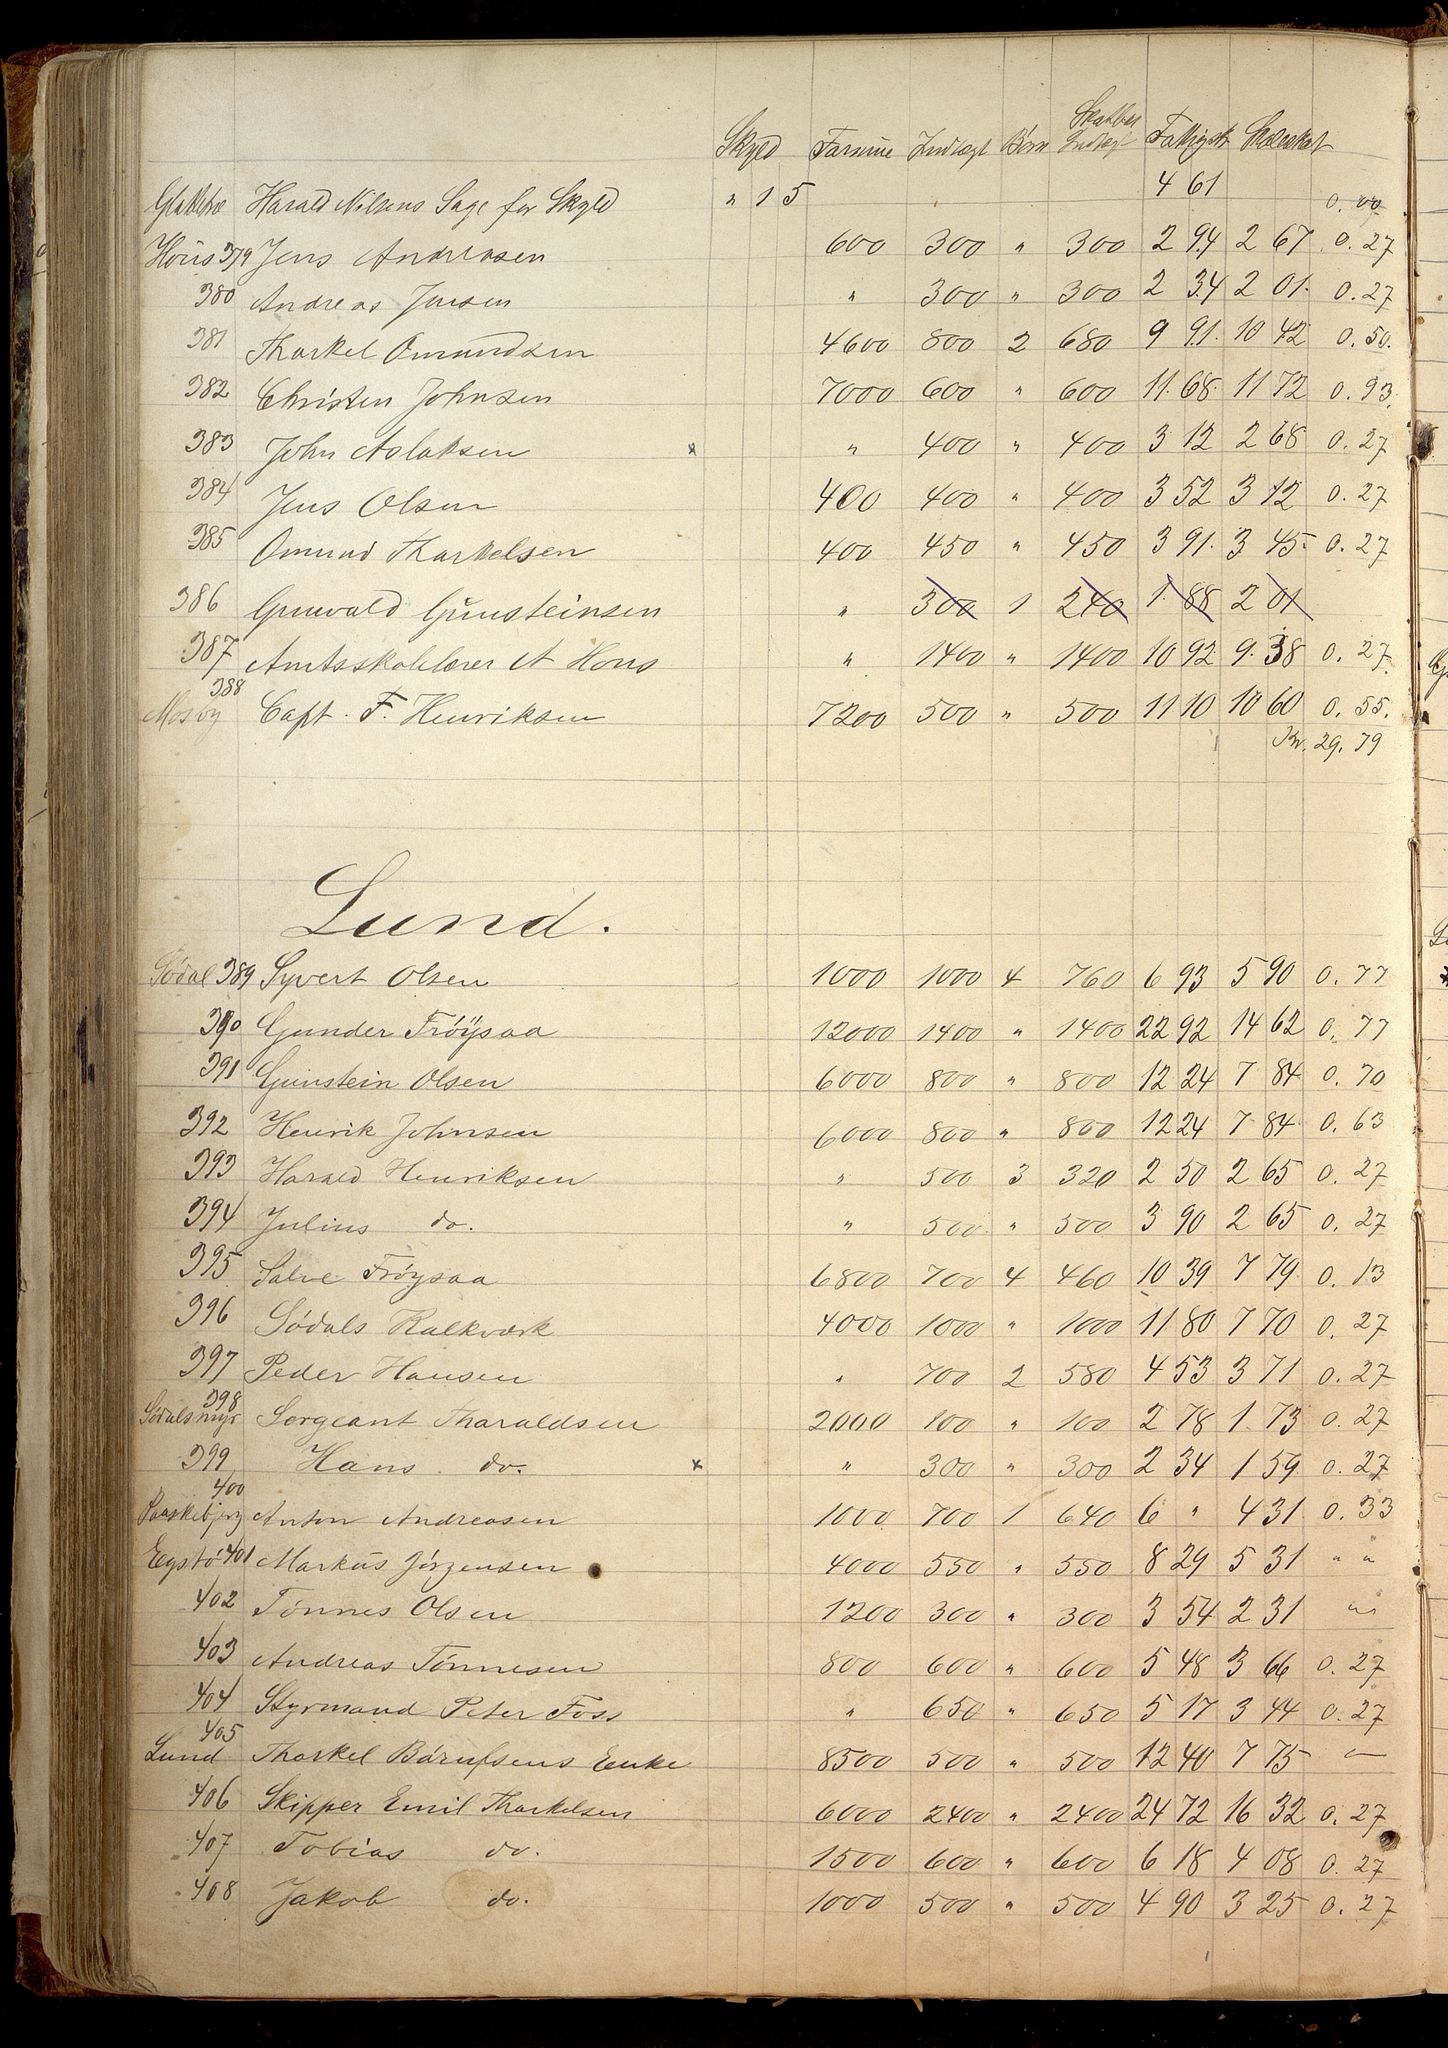 Skyld Formue Indtægt Børn Skatbar Indtægt Fattigsk Skoleskat
Glattetre Harald Nilsens Sage for Skyld " 1 5 4 61 0.00
Höus 379 Jens Andreasen 600 300 " 300 2 94 2 67 0.27
380 Andreas Jensen " 300 " 300 2 34 2 01 0.27
381 Tharkel Omundsen 4600 800 2 680 9 91 10 42 0.50.
382 Christen Johnsen 7000 600 " 600 11 68 11 72 0.93.
383 John Aslaksen x " 400 " 400 3 12 2 68 0.27
384 Jens Olsen 400 400 " 400 3 52 3 12 0.27
385 Omund Tharkelsen 400 450 " 450 3 91 3 45 0.27
386 Grunvald Gunsteinsen " 300 1 240 1 88 2 01
387 Amtsskolelærer A Hous " 1400 " 1400 10 92 9 38 0.27
Mosby 388 Capt. F. Henriksen 7200 500 " 500 11 10 10 60 0.55.
Kr. 29.79
Lund.
Södal 389 Syvert Olsen 1000 1000 4 760 6 93 5 90 0.77
390 Gunder Fröÿsaa 12000 1400 " 1400 22 92 14 62 0.77
391 Gunstein Olsen 6000 800 " 800 12 24 7 84 0.70
392 Henrik Johnsen 6000 800 " 800 12 24 7 84 0.63
393 Harald Henriksen " 500 3 320 2 50 2 65 0.27
394 Julius do. " 500 " 500 3 90 2 65 0.27
395 Salve Fröysaa 6800 700 4 460 10 39 7 79 0.13
396 Södals Kalkværk 4000 1000 " 1000 11 80 7 70 0.27
397 Peder Hansen " 700 2 580 4 53 3 71 0.27
Södalsmyr 398 Sergeant Tharaldsen 2000 100 " 100 2 78 1 73 0.27
399 Hans do. x " 300 " 300 2 34 1 59 0.27
400 Anton Andreasen 1000 700 1 640 6 " 4 31 0.33
Egstö 401 Markus Jörgensen 4000 550 " 550 8 29 5 31 " "
402 Tönnes Olsen 1200 300 " 300 3 54 2 31 "
403 Andreas Tönnesen 800 600 " 600 5 48 3 66 0.27
404 Styrmand Peter Foss " 650 " 650 5 17 3 44 0.27
Lund 405 Tharkel Bärufsens Enke 8500 500 " 500 12 40 7 75 —
406 Skipper Emil Tharkelsen 6000 2400 " 2400 24 72 16 32 0.27
407 Tobias do. 1500 600 " 600 6 18 4 08 0.27
408 Jakob do. 1000 500 " 500 4 90 3 25 0.27